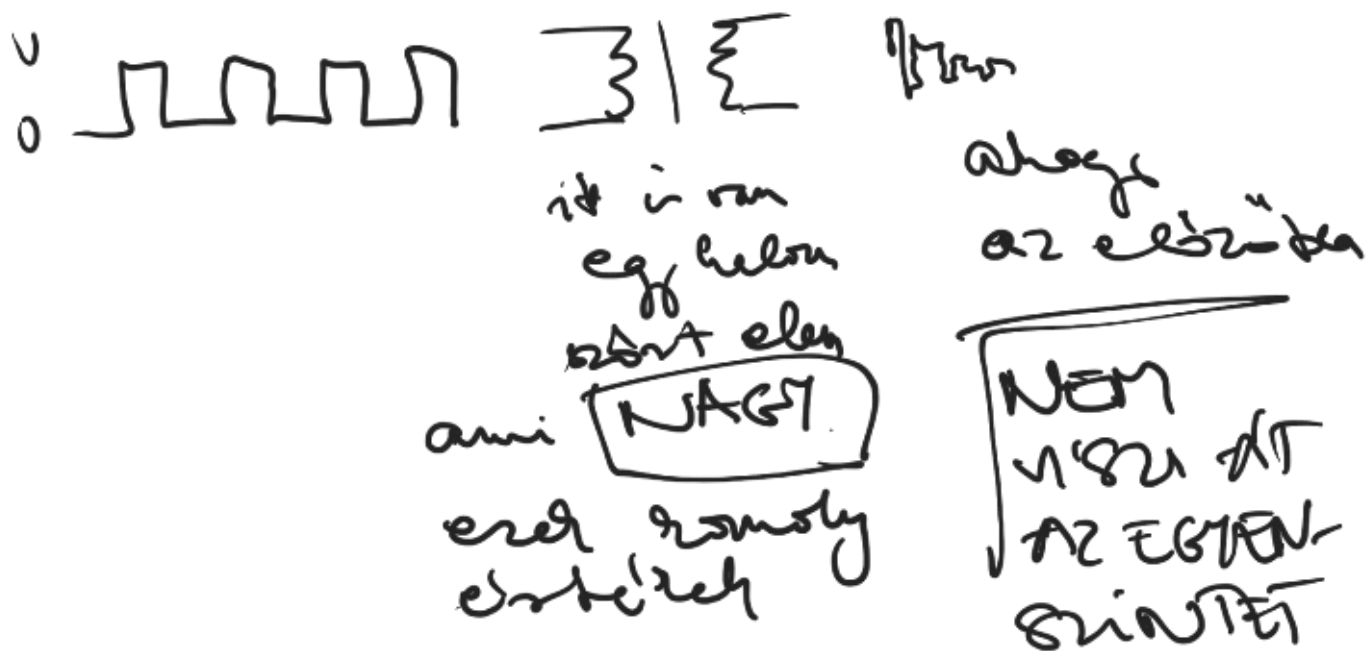 U
0
itt is van
egy
szórt elem
ami NAGY
ezek komoly
értékek
ahogy
az előzőekben
NEM
VISZI ÁT
AZ EGYEN-
SZINTET